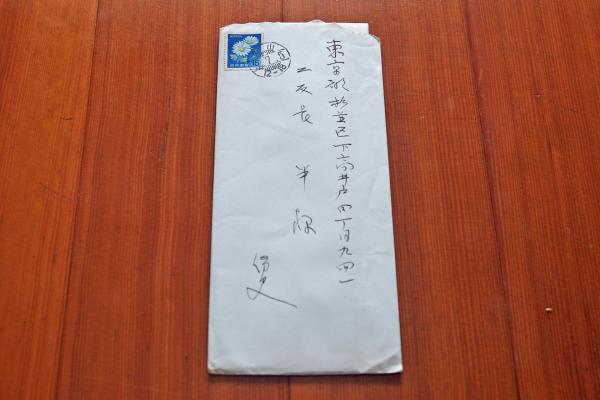 東京都杉並区下高井戸四丁目九四一
二反長 半様
侍史
15